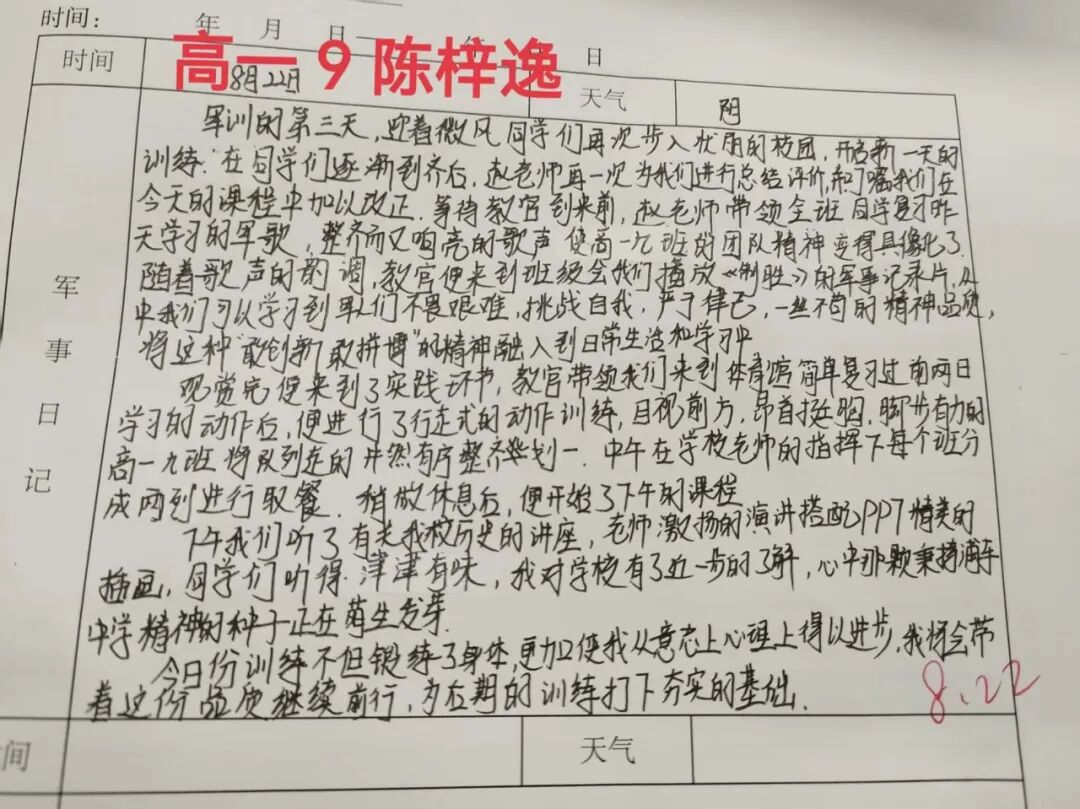 时间： 年 月 日 年 日
高一 9 陈梓逸
时间 8月22日 天气 阴
军事日记
军训的第三天，迎着微风同学们再次步入状朋的校园，开启新一天的
训练．在同学们逐渐到齐后，赵老师再一次为我们进行总结评价，和叮嘱我们在
今天的课程中加以改正．等待教官到来前，赵老师带领全班同学复习昨
天学习的军歌，整齐而又响亮的歌声使高一九班的团队精神变得具像化了
随着歌声的 调，教官便来到班级会我们播放《制胜》的军事记录片，从
中我们可以学习到军人们不畏艰难，挑战自我．严于律己，一丝不苟的精神品质，
将这种“敢创新敢拼博”的精神融入到日常生活和学习中
观赏完便来到了实践环节，教官带领我们来到体育馆简单复习过前两日
学习的动作后，便进行了行走式的动作训练，目视前方，昂首挺胸，脚步有力的
高一九班将队列走的井然有序整齐划一．中午在学校老师的指挥下每个班分
成两列进行取餐．稍做休息后，便开始了下午的课程
下午我们听了有关我校历史的讲座，老师激扬的演讲搭配PPT精美的
插画，同学们听得津津有味，我对学校有了近一步的了解，心中那颗秉持浦东
中学精神的种子正在萌生发芽．
今日份训练不但锻练了身体，更加使我从意志上心理上得以进步，我将会带
着这份品质继续前行，为后期的训练打下夯实的基础．
8.22
时间 天气